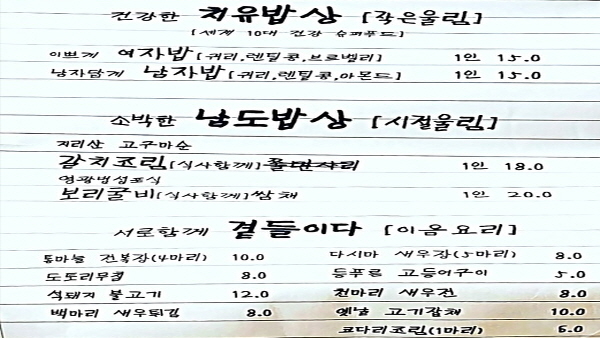 건강한 치유밥상 [작은울림]
[세계 10대 건강 슈퍼푸드]
이쁘게 여자밥 [귀리,렌틸콩,브로멜리] 1인 15.0
남자답게 남자밥 [귀리,렌틸콩,아몬드] 1인 15.0
소박한 남도밥상 [시절울림]
지리산 고구마순
갈치조림 [식사함께] 1인 18.0
영광법성포식
보리굴비 [식사함께] 쌈채 1인 20.0
서로함께 곁들이다 [이음요리]
통마늘 전복장(4마리) 10.0
다시마 새우장(5마리) 8.0
도토리무침 8.0
등푸른 고등어구이 5.0
석돼지 불고기 12.0
천마리 새우전 8.0
백마리 새우튀김 8.0
옛날 고기잡채 10.0
코다리조림(1마리) 6.0